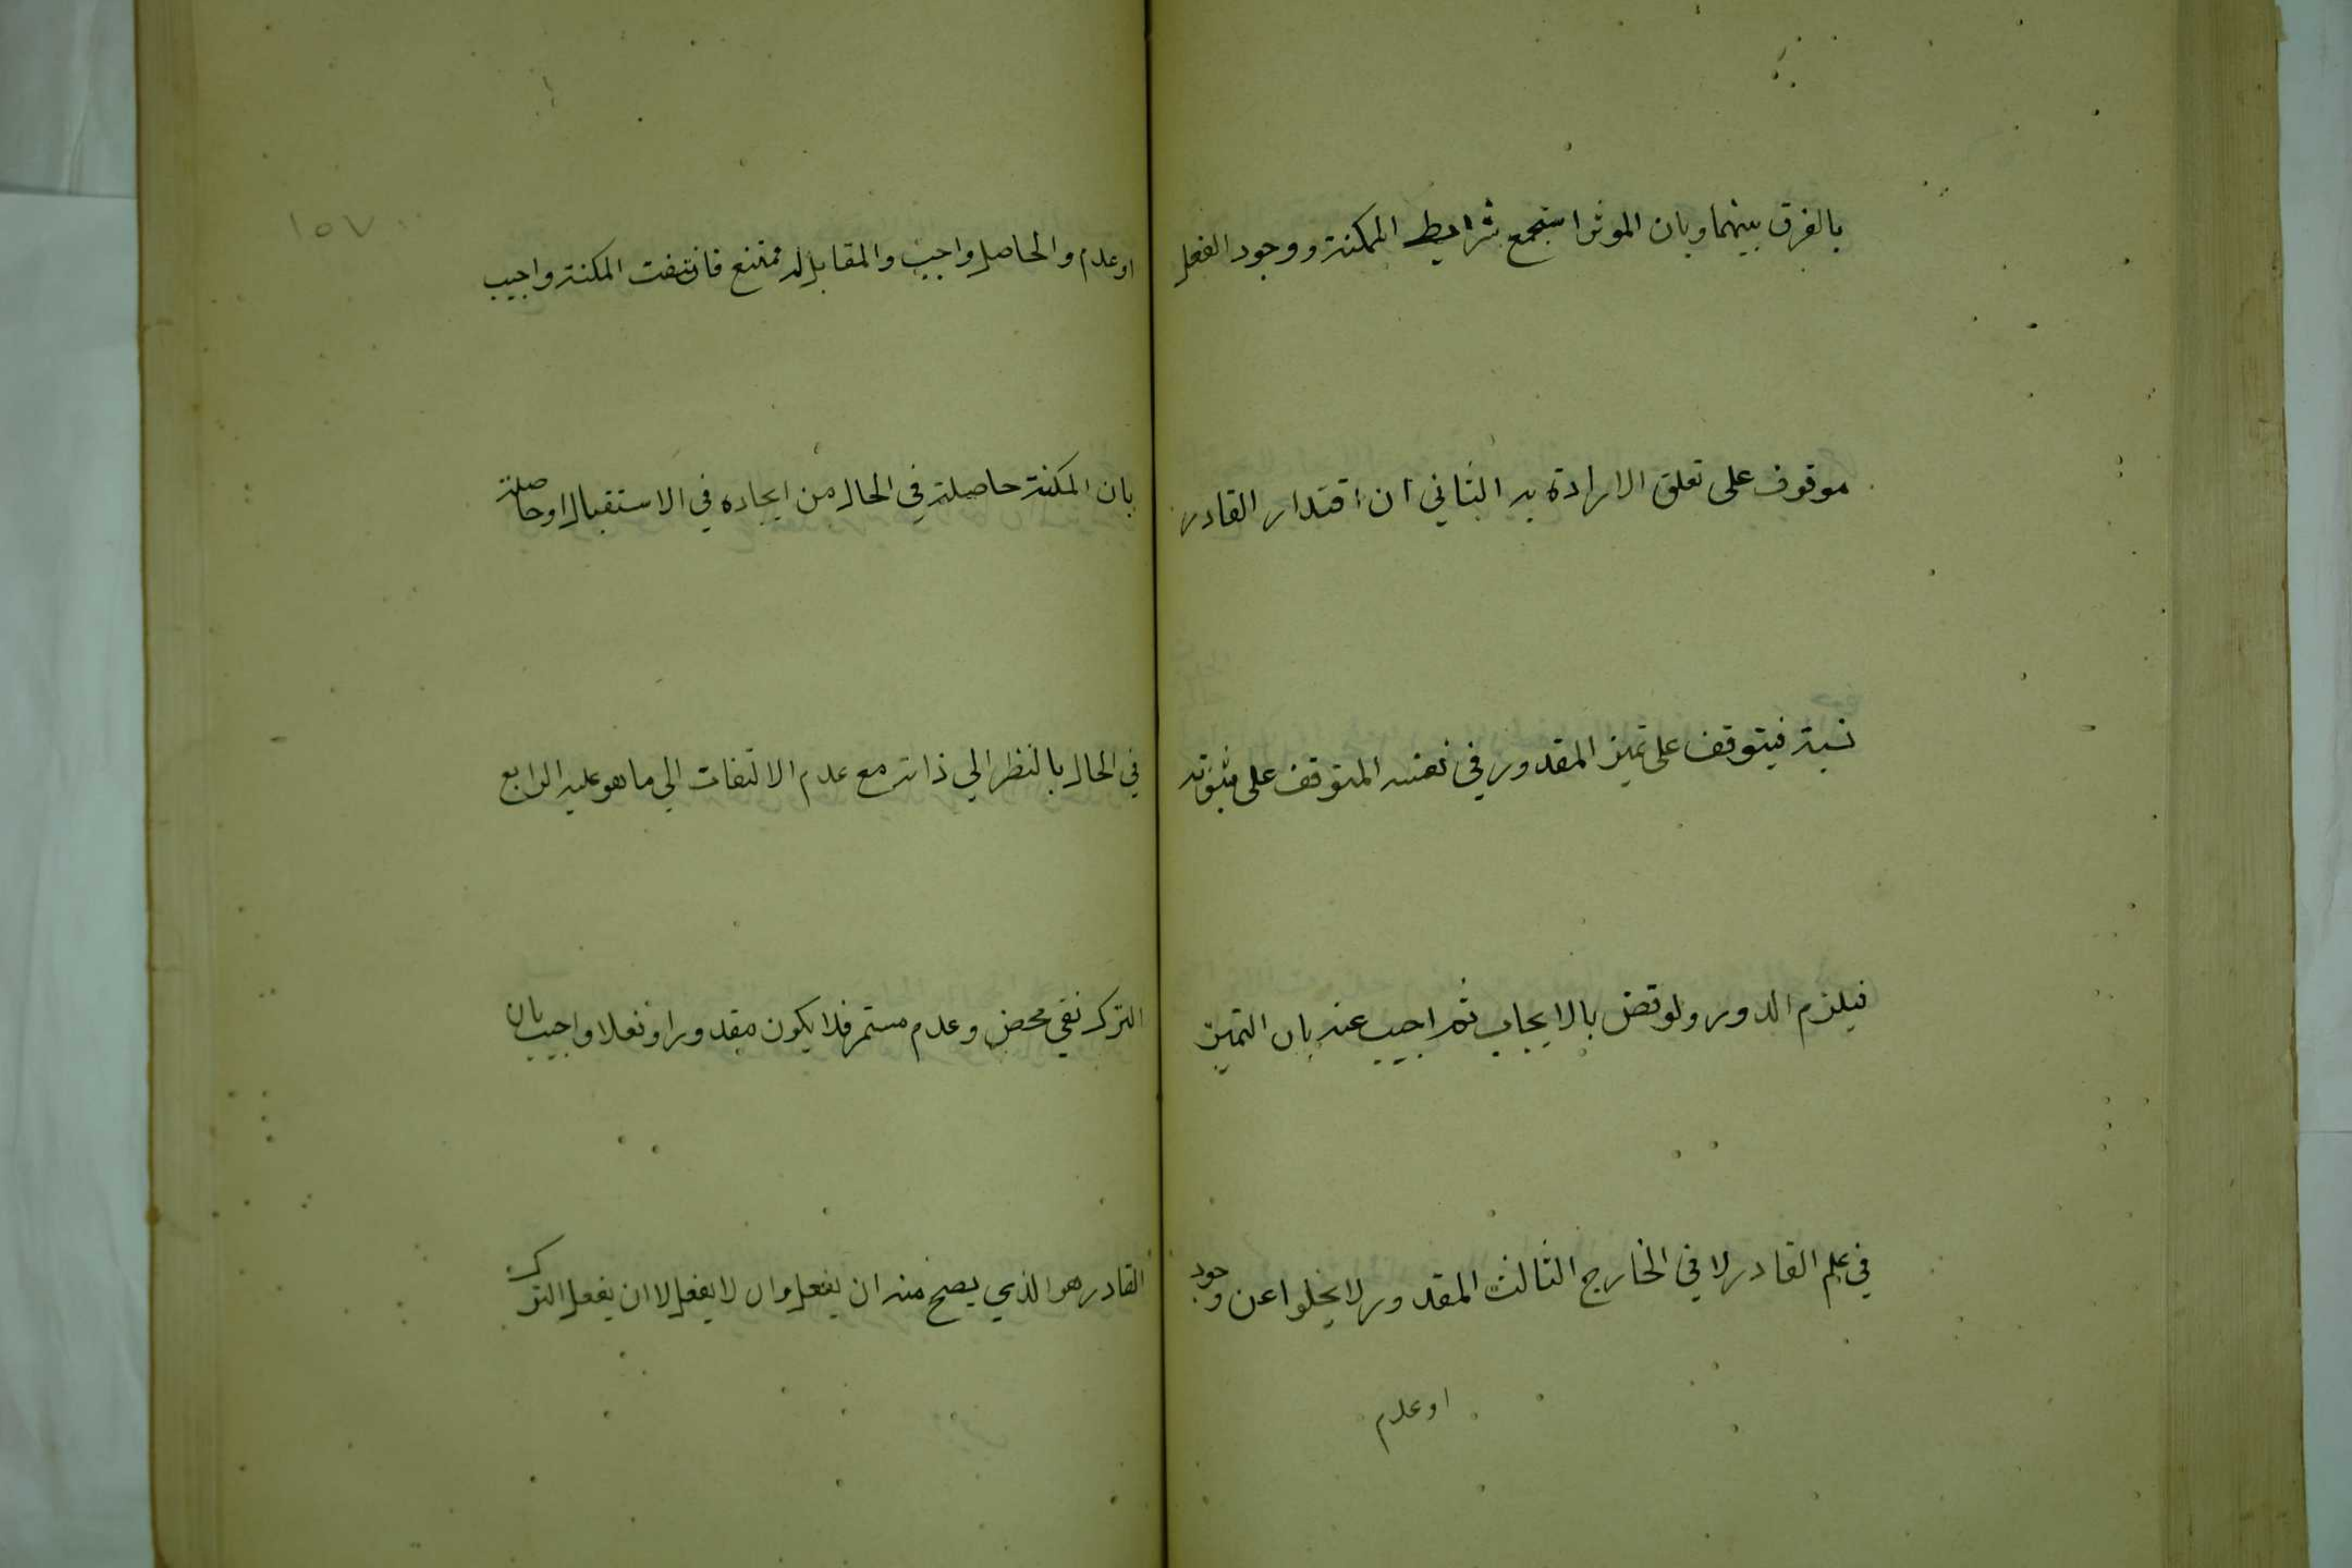 بالفرق بينهما وبان الموثر استجمع شرايط المكنة ووجود الفعل
موقوف على تعلق الارادة به الثاني ان اقتدار القادر
نسبة فيتوقف على تميز المقدور في نفسه المتوقف على ثبوته
فيلزم الدور ونوقض بالايجاب ثم اجيب عنه بان التميز
في علم القادر لا في الخارج الثالث المقدور لا يخلوا عن وجود
او عدم
١٥٧
او عدم والحاصل واجب والمقابل له ممتنع فانتفت المكنة واجيب
بان المكنة حاصلة في الحال من ايجاده في الاستقبال او حاصلة
في الحال بالنظر الي ذاته مع عدم الالتفات الي ما هو عليه الرابع
الترك نفي محض وعدم مستمر فلا يكون مقدورا وفعلا واجيب بان
القادر هو الذي يصح منه ان يفعل وان لا يفعل لا ان يفعل الترك